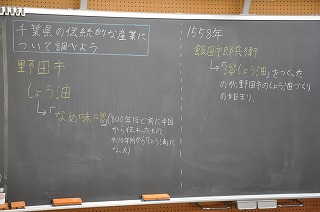 千葉県の伝統的な産業に
ついて調べよう
野田市
しょう油
↳「なめ味噌」(800年ほど前に中国
から伝わったもの。
400年前から「しょう油」に
なった)
1558年
飯田市郎兵衛
↳「溜しょう油」をつくった
のが、野田市のしょう油づくり
の始まり。